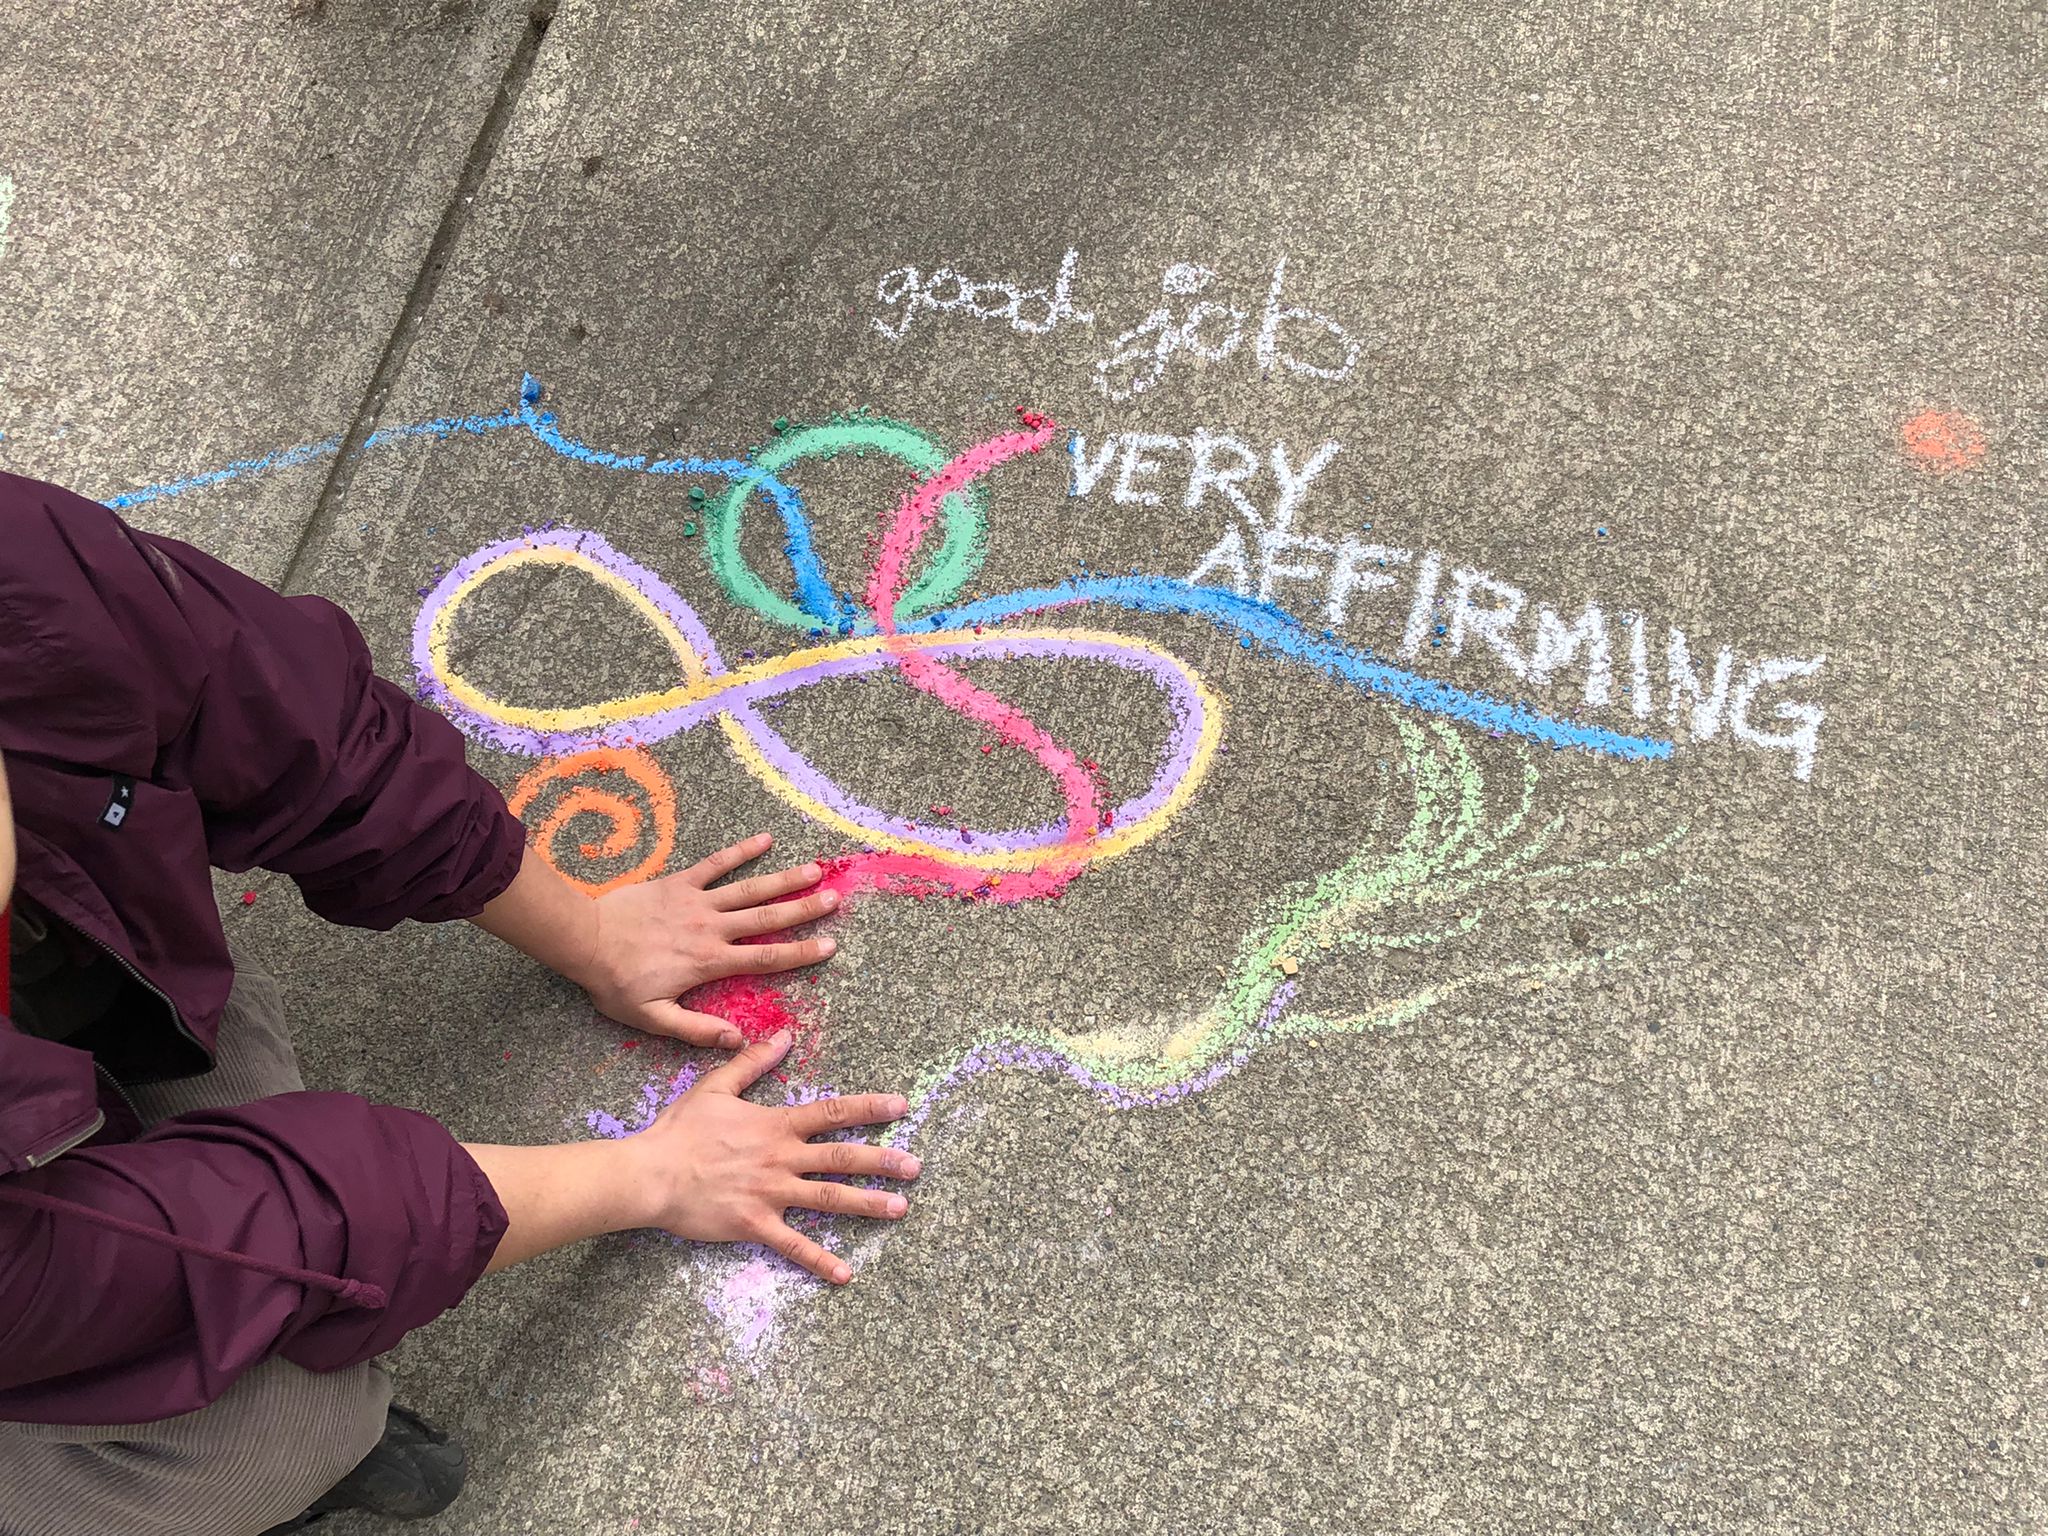 good job
VERY
AFFIRMING